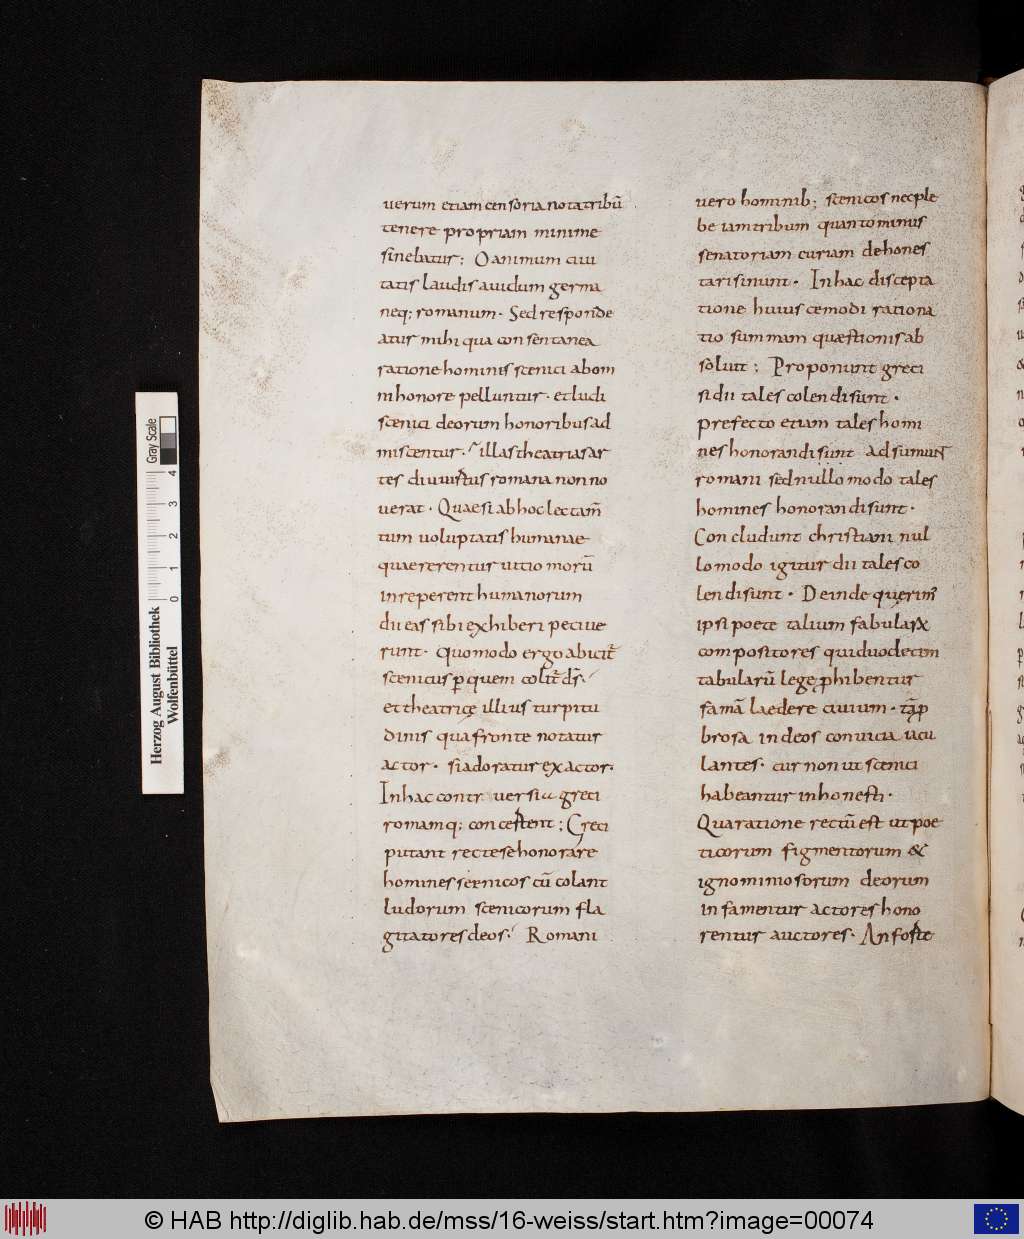 uerum etiam censoria nota tribū
tenere propriam minime
sinebatur; O animum ciui
tatis laudis auidum germa
neq; romanum. Sed responde
atur mihi qua consentanea
ratione hominis scenici ab om
ni honore pelluntur. et ludi
scenici deorum honoribus ad
miscentur. illas theatrias ar
tes diu uirtus romana non no
uerat. Quae si ab hoc lectam̄
tum uoluptatis humanae
quaererentur uitio morū
inreperent humanorum
dii eas sibi exhiberi petiue
runt. quomodo ergo abicit̄
scenicus ꝑ quem colit̄ ds̄.
et theatricę illius turpitu
dinis qua fronte notatur
actor. si adoratur exactor.
In hac controuersia greci
romamq; concertent; Greci
putant recte se honorare
homines scenicos cū colant
ludorum scenicorum fla
gitatores deos. Romani
uero hominib; scenicos nec ple
beiam tribum quanto minus
senatoriam curiam dehones
tari sinunt. In hac discepta
tione huiuscemodi rationa
tio summam quęstionis ab
soluit; Proponunt greci
si dii tales colendi sunt.
profecto etiam tales homi
nes honorandi sunt adsumunt
romani sed nullo modo tales
homines honorandi sunt.
Concludunt christiani nul
lo modo igitur dii tales co
lendi sunt. Deinde querim᾽
ipsi poete talium fabularꝝ
compositores qui duodecim
tabularū lege ꝓhibentur
famā laedere ciuium. tā ꝓ
brosa in deos conuicia iacu
lantes. cur non ut scenici
habeantur inhonesti.
Qua ratione rectū est ut poe
ticorum figmentorum &
ignominiosorum deorum
infamentur actores hono
rentur auctores. An forte
Herzog August Bibliothek
Wolfenbüttel
0 1 2 3 4
Gray Scale
© HAB http://diglib.hab.de/mss/16-weiss/start.htm?image=00074